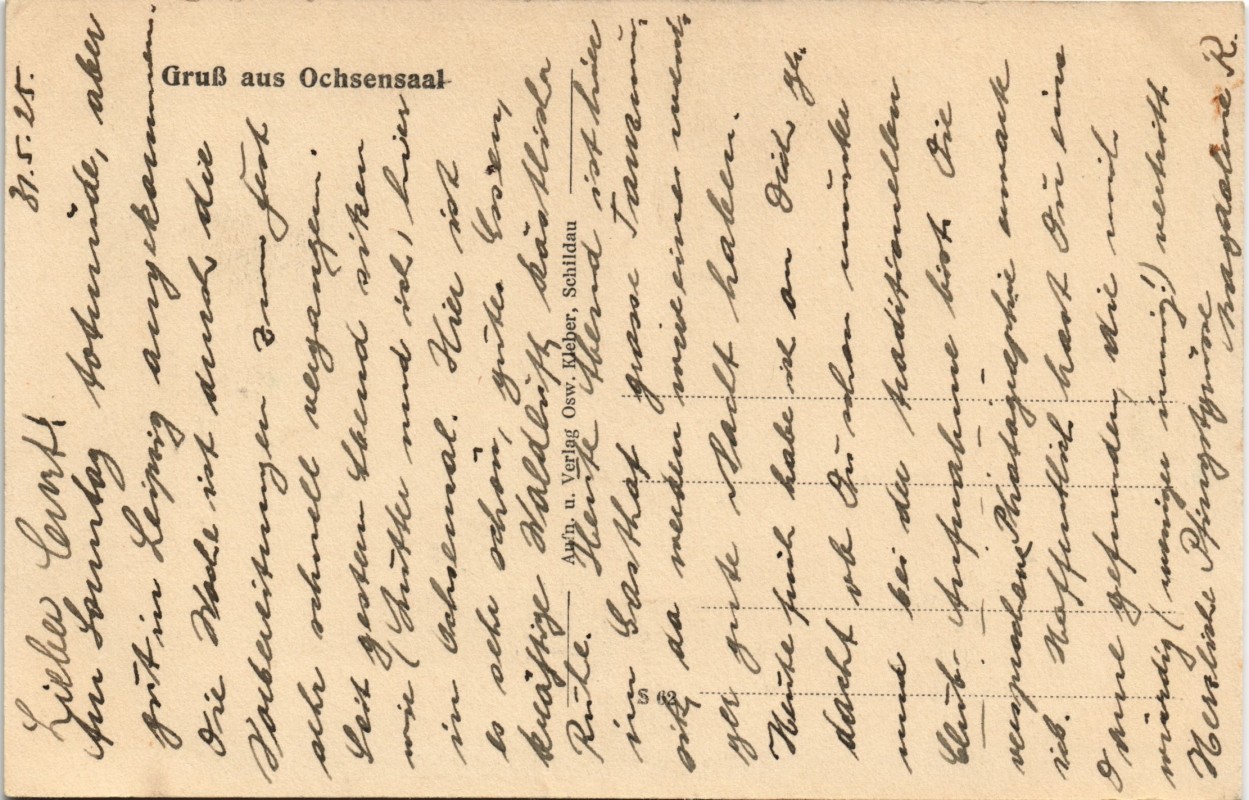 Gruß aus Ochsensaal
31. 5. 25.
Lieber Curt!
Am Sonntag totmüde, aber
gut in Leipzig angekommen.
Die Woche ist durch die
Vorbereitungen zum Fest
sehr schnell vergangen.
Seit gestern Abend sitzen
wir (Mutter und ich) hier
in Ochsensaal. Hier ist
es sehr schön, gutes Essen,
kräftige Waldluft, köstliche
Ruhe. Heute Abend ist hier
im Gasthof grosse Tanzmu-
sik, da werden wir eine weni-
ger gute Nacht haben.
Heute früh habe ich an Dich ge-
dacht, ob Du schon munter
und bei der traditionellen
Club-Aufnahme bist. Die
versprochene Photographie erwarte
ich. Hoffentlich hast Du eine
Dame gefunden, die mich
würdig (weniger innig!) vertritt.
Herzliche Pfingstgrüsse
Magdalene R.
Aufn. u. Verlag Osw. Kleber, Schildau
S 62